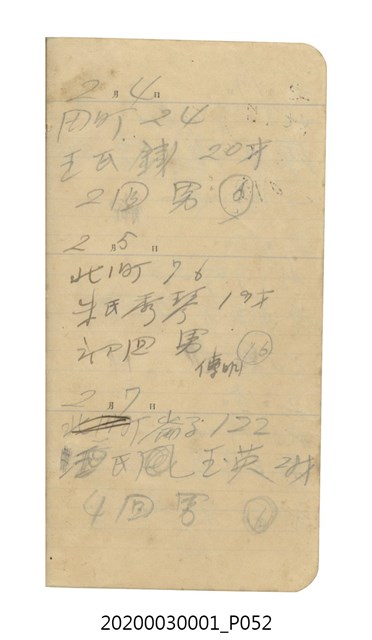 2月4日
田町 24
王氏 20才
2回 男 6
2月5日
北町 76
朱氏秀琴 19才
初回 男 16
傳明
2月7日
崙子 122
氏 玉英
4回 男
20200030001_P052